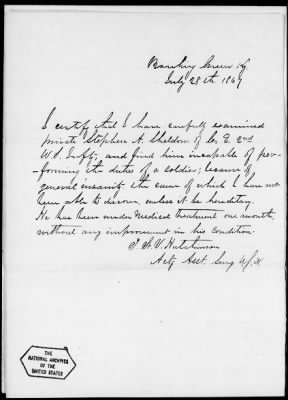 Bowling Green Ky
July 28th 1867
I certify that I have carefully examined
private Stephen A. Sheldon of Co. E. 2nd
U.S. Infty, and find him incapable of per-
-forming the duties of a soldier; because of
general insanity the cause of which I have not
been able to discover, unless it be hereditary.
He has been under Medical treatment one month,
without any improvement in his condition.
Hutchinson
Actg Asst. Surg U.S.A
THE
NATIONAL ARCHIVES
OF THE
UNITED STATES